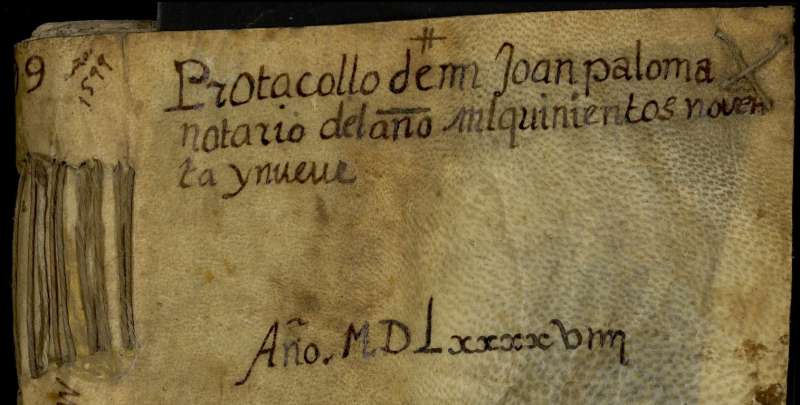 9
1599
Protacollo de mi Joan paloma
notario del año mil quinientos noven
ta y nueue
Año. MDLxxxxviiij